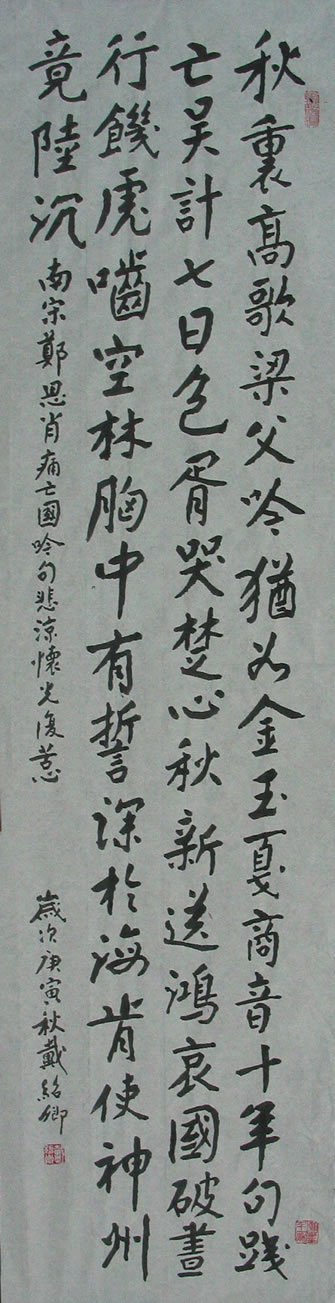 秋裏高歌梁父吟猶如金玉戛商音十年句踐
亡吴計七日包胥哭楚心秋新送鴻哀國破晝
行饑虎嚙空林胸中有誓深於海肯使神州
竟陸沉
南宋鄭思肖痛亡國吟句悲涼懷光復
歲次庚寅秋戴紹卿